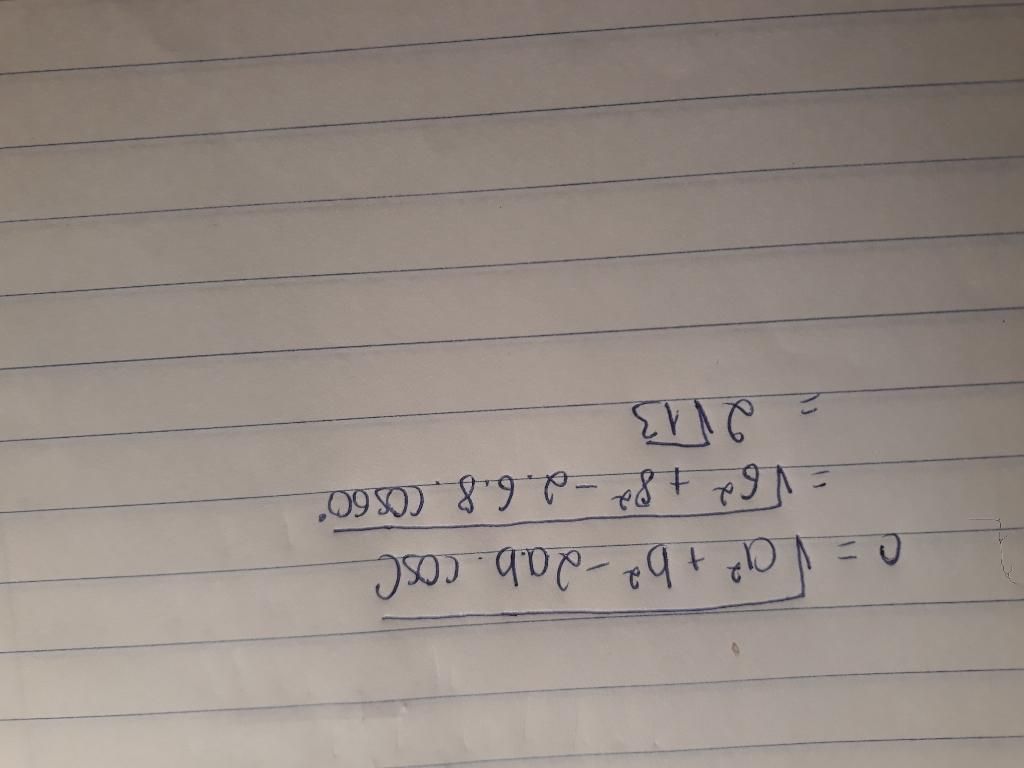 c = √a² + b² - 2ab . cosC
= √6² + 8² - 2.6.8. cos60°
= 2√13